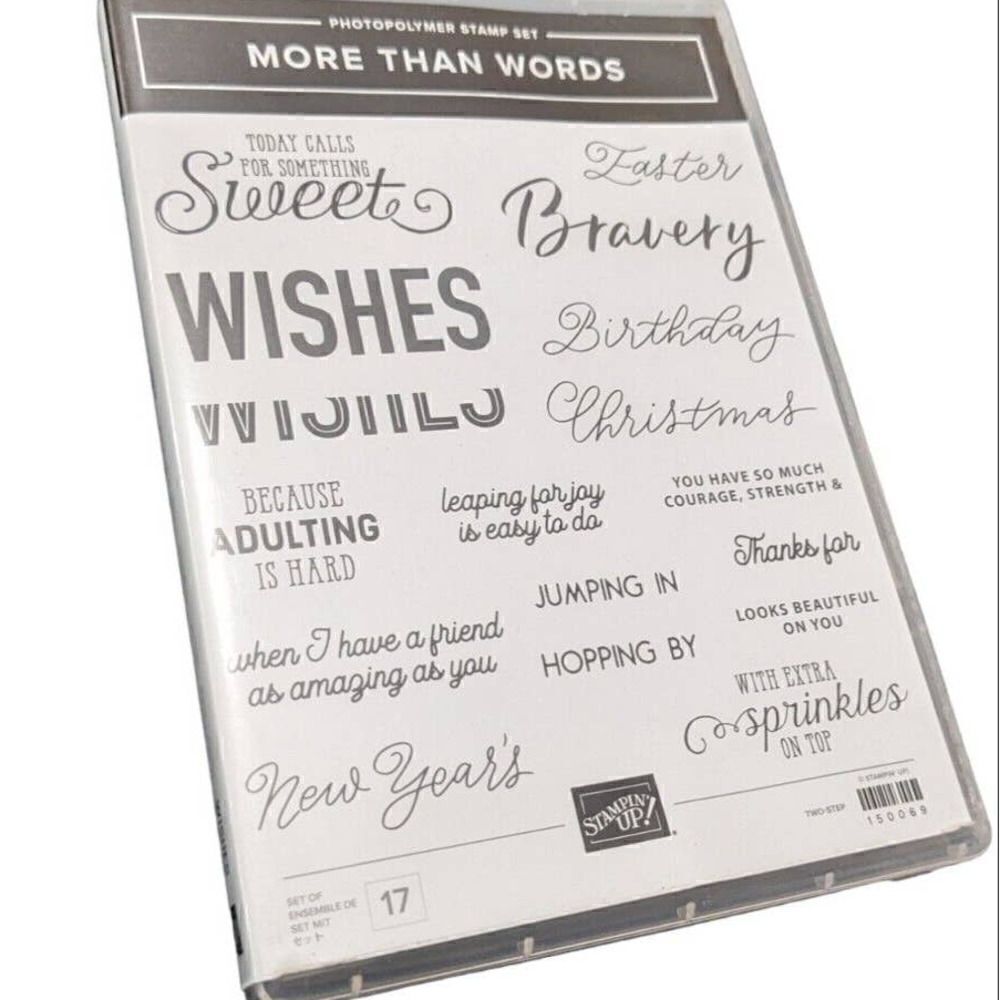 PHOTOPOLYMER STAMP SET
MORE THAN WORDS
TODAY CALLS
FOR SOMETHING
Sweet
Easter
Bravery
WISHES
Birthday
WISHES
Christmas
BECAUSE
ADULTING
IS HARD
leaping for joy
is easy to do
YOU HAVE SO MUCH
COURAGE, STRENGTH &
Thanks for
JUMPING IN
LOOKS BEAUTIFUL
ON YOU
when I have a friend
as amazing as you
HOPPING BY
WITH EXTRA
sprinkles
ON TOP
New Year's
STAMPIN'
UP!
© STAMPIN' UP!
TWO-STEP
150069
SET OF
ENSEMBLE DE
SET MIT
セット
17